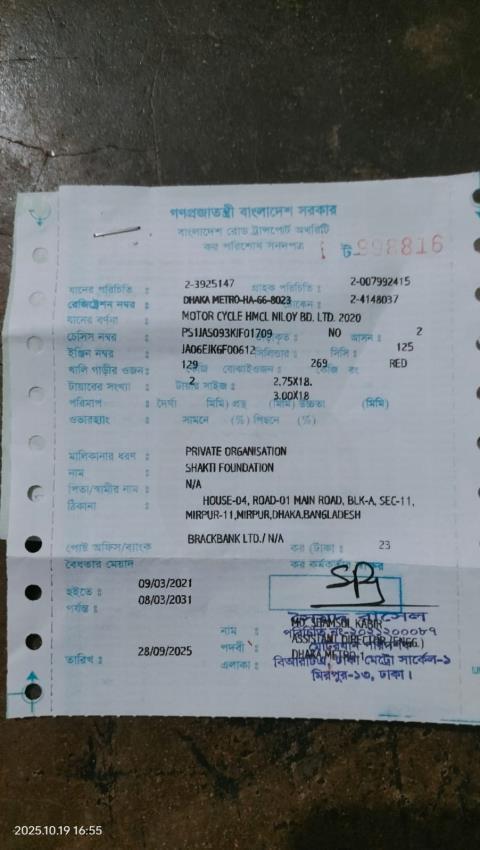 গণপ্রজাতন্ত্রী বাংলাদেশ সরকার
বাংলাদেশ রোড ট্রান্সপোর্ট অথরিটি
কর পরিশোধ সনদপত্র
যানের পরিচিতি : 2-3925147 গ্রাহক পরিচিতি : 2-007992415
রেজিষ্ট্রেশন নম্বর : DHAKA METRO-HA-66-8023 2-4148037
যানের বর্ণনা : MOTOR CYCLE HMCL NILOY BD. LTD. 2020
চেসিস নম্বর : PS1JAS093KJF01709 NO আসন : 2
ইঞ্জিন নম্বর : JA06EJK6F00612 সিলিন্ডার : সিসি : 125
খালি গাড়ীর ওজন : 129 কেজি বোঝাইওজন : 269 কেজি রং RED
টায়ারের সংখ্যা : 2 টায়ার সাইজ : 2.75X18.
3.00X18
পরিমাপ : দৈর্ঘ্য মিমি) প্রস্থ (মিমি) উচ্চতা (মিমি)
ওভারহ্যাং : সামনে (%) পিছনে (%)
মালিকানার ধরণ : PRIVATE ORGANISATION
নাম : SHAKTI FOUNDATION
পিতা/স্বামীর নাম : N/A
ঠিকানা : HOUSE-04, ROAD-01 MAIN ROAD, BLK-A, SEC-11,
MIRPUR-11,MIRPUR,DHAKA,BANGLADESH
পোষ্ট অফিস/ব্যাংক BRACKBANK LTD./ N/A কর (টাকা : 23
বৈধতার মেয়াদ
হইতে : 09/03/2021
পর্যন্ত : 08/03/2031
নাম : MD. SHAMSUL KABIR
পদবী : ASSISTANT DIRECTOR (ENGG.)
তারিখ : 28/09/2025 এলাকা : DHAKA METRO-1
বিআরটিএ, ঢাকা মেট্রো সার্কেল-১
মিরপুর-১৩, ঢাকা।
2025.10.19 16:55